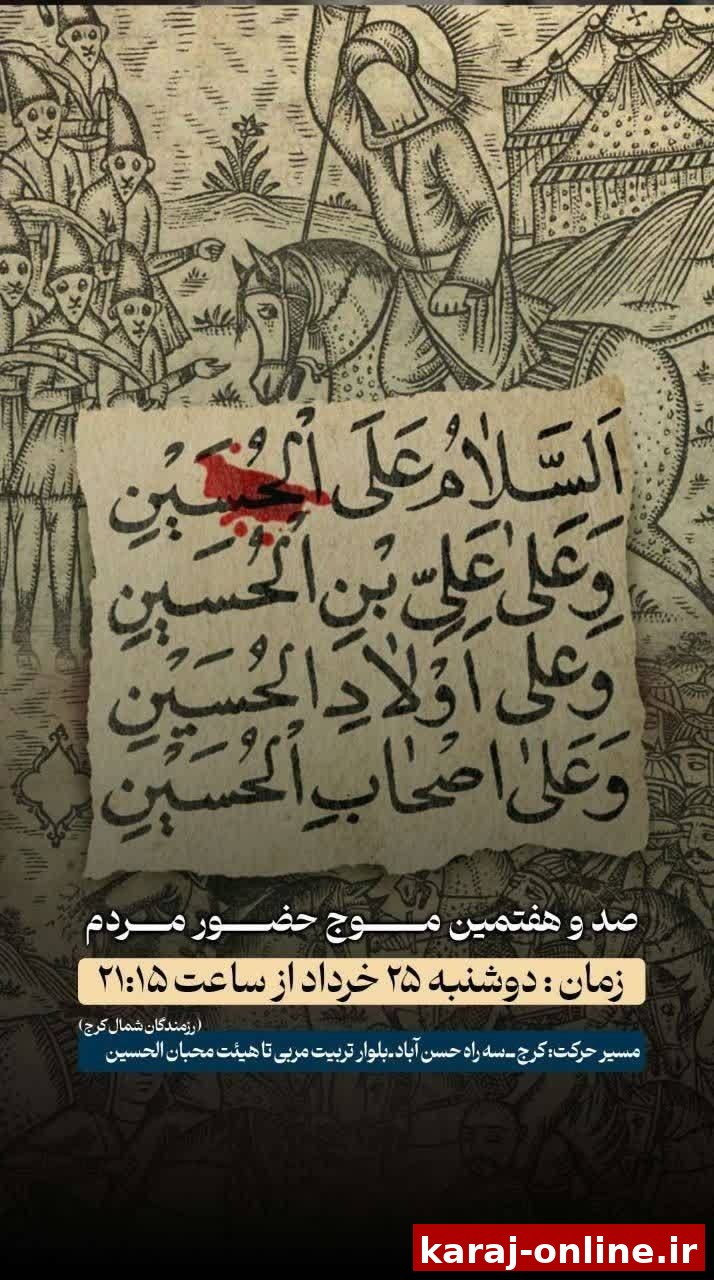 اَلسَّلاٰمُ عَلَی الْحُسَیْنِ
وَعَلیٰ عَلِیِّ بْنِ الْحُسَیْنِ
وَعَلی اَوْلاٰدِ الْحُسَیْنِ
وَعَلیٰ اَصْحٰابِ الْحُسَیْنِ
صد و هفتمین موج حضور مردم
زمان : دوشنبه ۲۵ خرداد از ساعت ۲۱:۱۵
(رزمندگان شمال کرج)
مسیر حرکت: کرج - سه راه حسن آباد. بلوار تربیت مربی تا هیئت محبان الحسین
karaj-online.ir